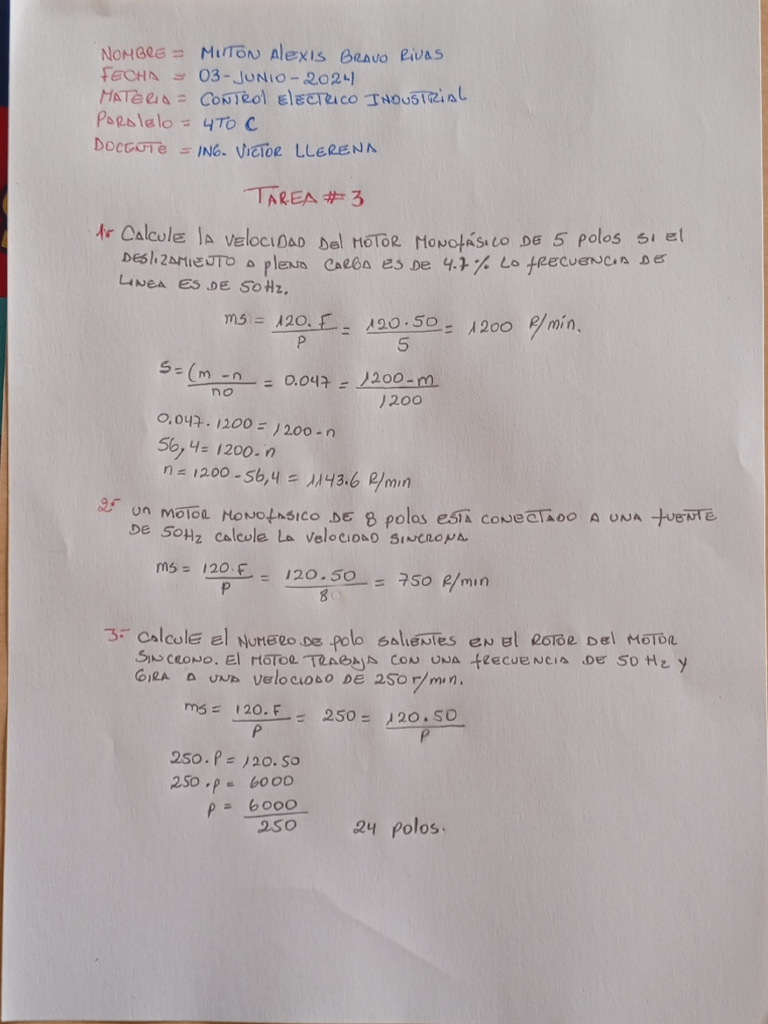 NOMBRE = MILTON ALEXIS BRAVO RIVAS
FECHA = 03-JUNIO-2024
MATERIA = CONTROL ELECTRICO INDUSTRIAL
PARALELO = 4TO C
DOCENTE = ING. VICTOR LLERENA
TAREA # 3
1.- CALCULE LA VELOCIDAD DEL MOTOR MONOFÁSICO DE 5 POLOS SI EL
DESLIZAMIENTO A PLENA CARGA ES DE 4.7% LA FRECUENCIA DE
LINEA ES DE 50Hz.
ms = 120.F / P = 120.50 / 5 = 1200 R/min.
S = (m - n / no = 0.047 = 1200 - m / 1200
0.047.1200 = 1200 - n
56,4 = 1200 - n
n = 1200 - 56,4 = 1143.6 R/min
2.- UN MOTOR MONOFASICO DE 8 POLOS ESTA CONECTADO A UNA FUENTE
DE 50Hz CALCULE LA VELOCIDAD SINCRONA
ms = 120.F / P = 120.50 / 8 = 750 R/min
3.- CALCULE EL NUMERO DE POLO SALIENTES EN EL ROTOR DEL MOTOR
SINCRONO. EL MOTOR TRABAJA CON UNA FRECUENCIA DE 50 Hz Y
GIRA A UNA VELOCIDAD DE 250 r/min.
ms = 120.F / P = 250 = 120.50 / P
250.P = 120.50
250.P = 6000
P = 6000 / 250 24 POLOS.